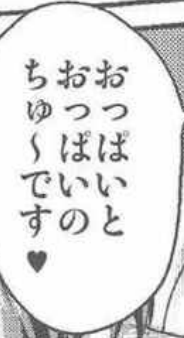 おっぱいと
おっぱいの
ちゅ～です♥